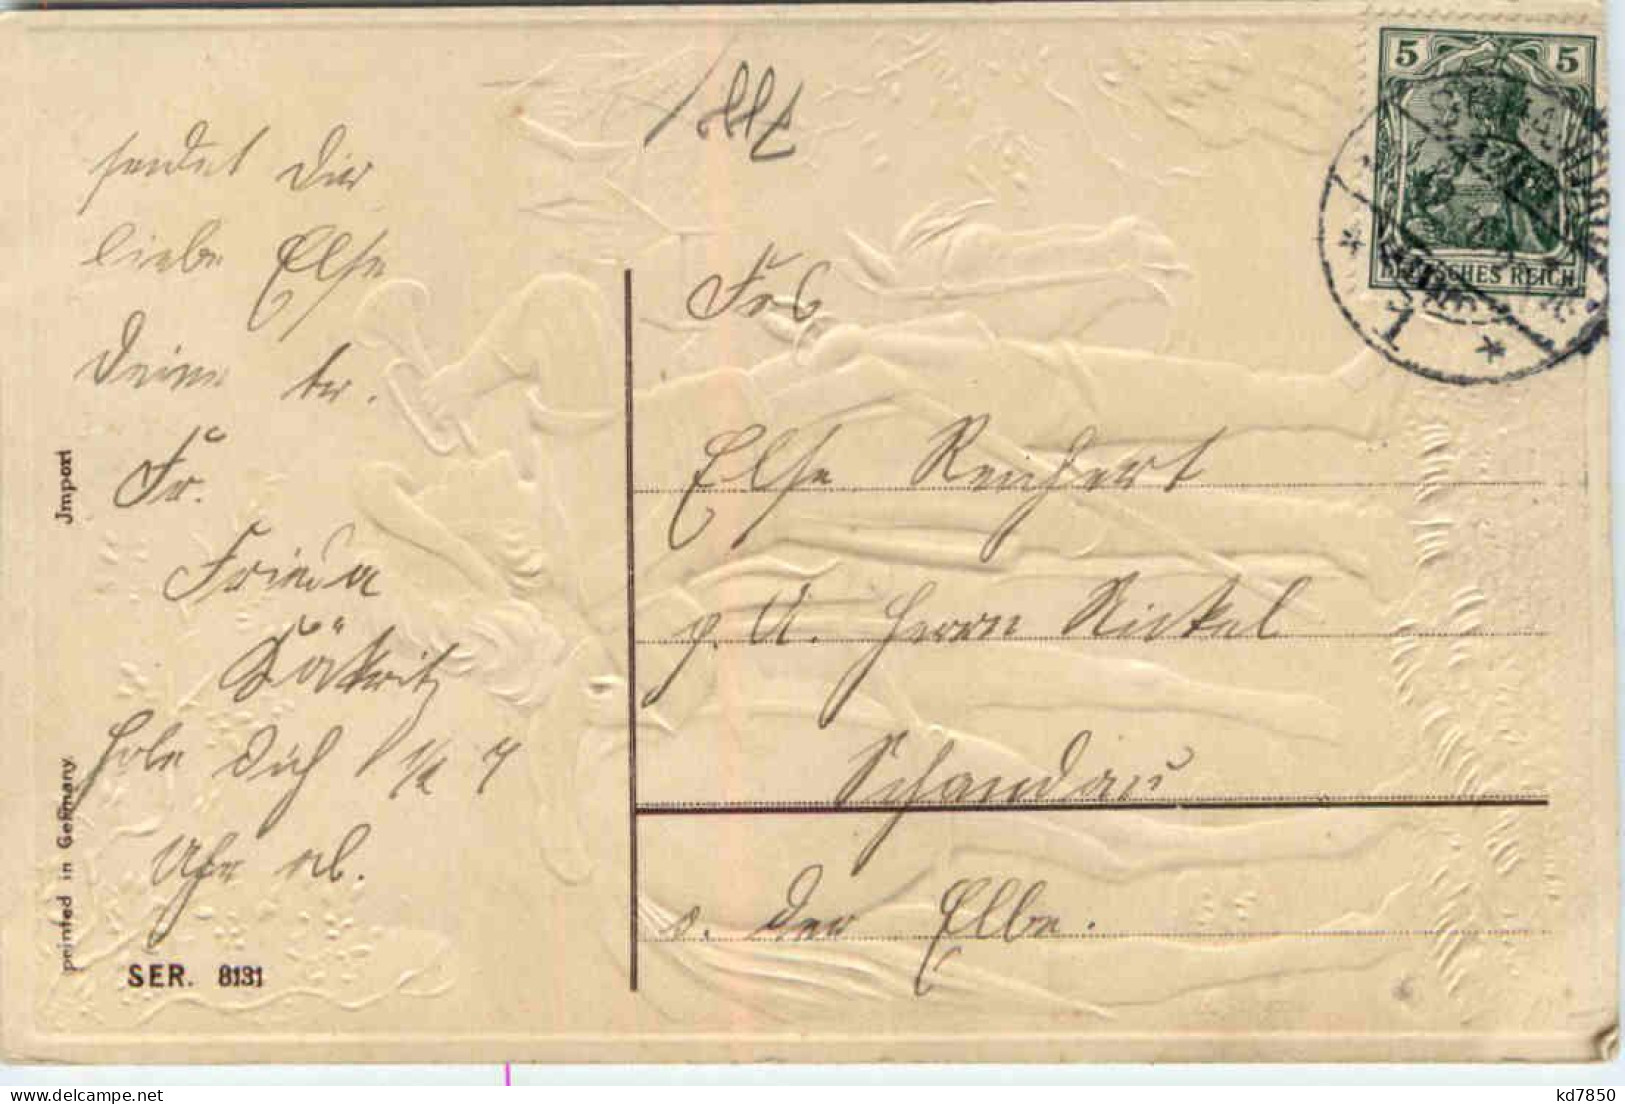 sendet Dir
liebe Else
Deine tr.
Fr.
Frieda
hole Dich 1/2 7
Uhr ab.
Jmport
printed in Germany
SER. 8131
5 5
DEUTSCHES REICH
Frl
Else Reichert
p. A. Herrn Nickel
Schandau
a. der Elbe.
kd7850